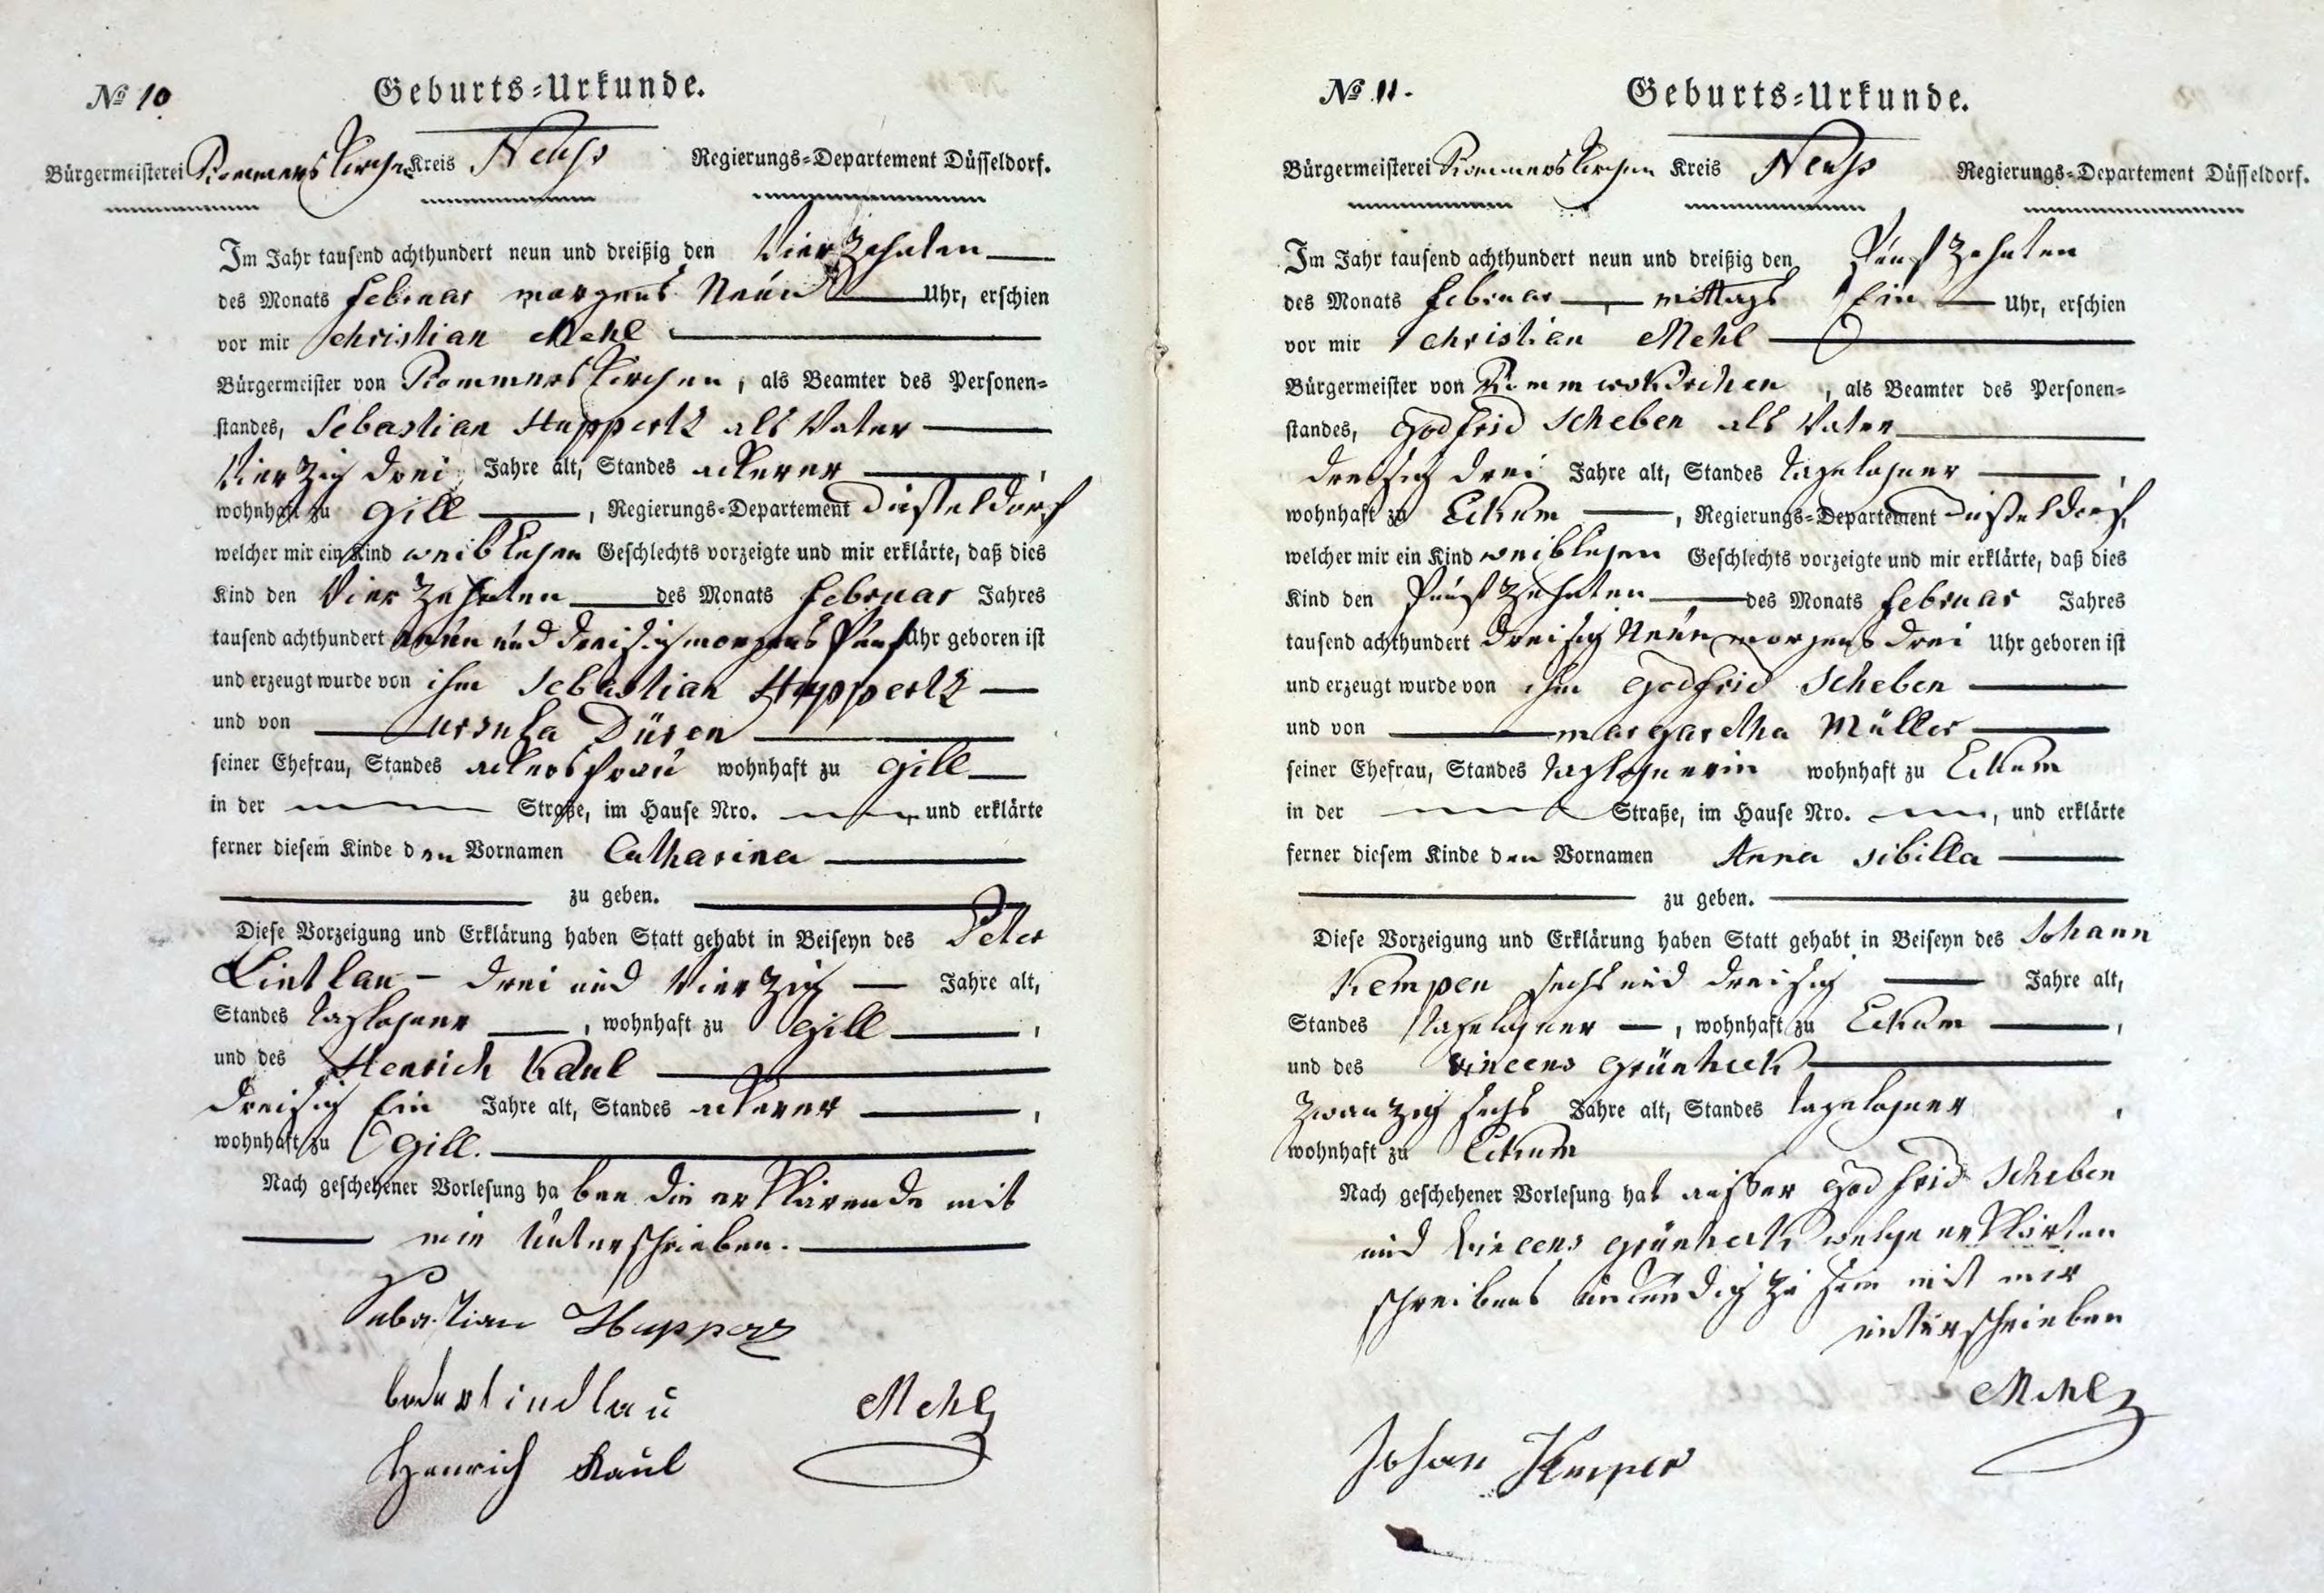 № 10.
Geburts=Urkunde.
Bürgermeisterei Rommerskirchen Kreis Neuss Regierungs=Departement Düsseldorf.
Im Jahr tausend achthundert neun und dreißig den Vierzehnten
des Monats Februar morgens Neun Uhr, erschien
vor mir Christian Mehl
Bürgermeister von Rommerskirchen, als Beamter des Personen=
standes, Sebastian Huppertz als Vater
Vierzig drei Jahre alt, Standes ackerer,
wohnhaft zu Gill, Regierungs=Departement Düsseldorf
welcher mir ein Kind weiblichen Geschlechts vorzeigte und mir erklärte, daß dies
Kind den Vierzehnten des Monats Februar Jahres
tausend achthundert neun und dreisig morgens Fünf Uhr geboren ist
und erzeugt wurde von ihm Sebastian Huppertz
und von Ursula Düren
seiner Ehefrau, Standes ackersfrau wohnhaft zu Gill
in der Straße, im Hause Nro. und erklärte
ferner diesem Kinde den Vornamen Catharina
zu geben.
Diese Vorzeigung und Erklärung haben Statt gehabt in Beiseyn des Peter
Lintlau - drei und Vierzig Jahre alt,
Standes taglohner, wohnhaft zu Gill,
und des Henrich Kaul
Dreisig Ein Jahre alt, Standes ackerer,
wohnhaft zu Gill.
Nach geschehener Vorlesung haben die erklärende mit
mir Unterschrieben.
Sebastian Hupperz
lindlau
Mehl
Henrich Kaul
№ 11.
Geburts=Urkunde.
Bürgermeisterei Rommerskirchen Kreis Neuss Regierungs=Departement Düsseldorf.
Im Jahr tausend achthundert neun und dreißig den Fünfzehnten
des Monats Februar mittags Ein Uhr, erschien
vor mir Christian Mehl
Bürgermeister von Rommerskirchen, als Beamter des Personen=
standes, Godfrid Scheben als Vater
dreisig drei Jahre alt, Standes tagelohner,
wohnhaft zu Eckum, Regierungs=Departement Düsseldorf,
welcher mir ein Kind weiblichen Geschlechts vorzeigte und mir erklärte, daß dies
Kind den Fünfzehnten des Monats Februar Jahres
tausend achthundert dreisig Neun morgens drei Uhr geboren ist
und erzeugt wurde von ihm Godfrid Scheben
und von margaretha Müller
seiner Ehefrau, Standes taglohnerin wohnhaft zu Eckum
in der Straße, im Hause Nro., und erklärte
ferner diesem Kinde den Vornamen Anna Sibilla
zu geben.
Diese Vorzeigung und Erklärung haben Statt gehabt in Beiseyn des Johann
Kempen sechs und dreisig Jahre alt,
Standes tagelohner, wohnhaft zu Eckum,
und des Vincens Grünheck
Zwanzig sechs Jahre alt, Standes tagelohner,
wohnhaft zu Eckum
Nach geschehener Vorlesung hat ausser Godfrid Scheben
und Vincens Grünheck welche erklärten
schreibens unkündig zu sein mit mir
unterschrieben
Mehl
Johan Kemper